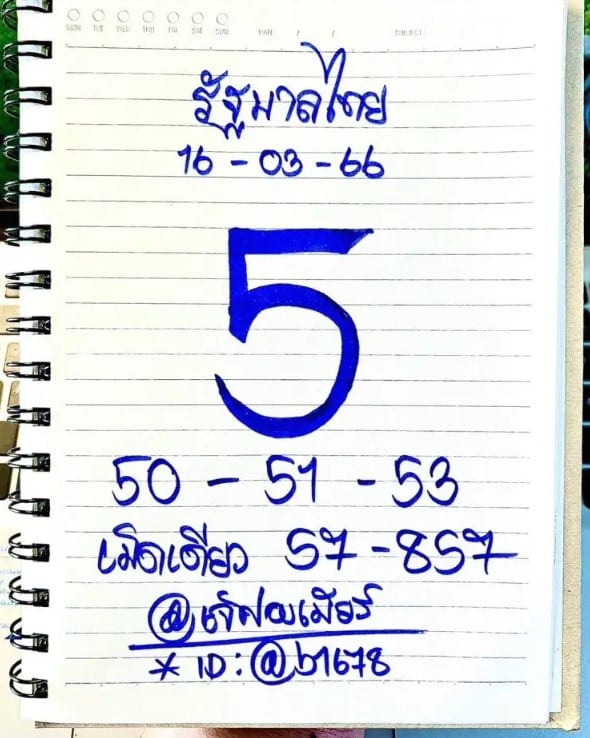 MON TUE WED THU FRI SAT SUN DATE / / SUBJECT
รัฐบาลไทย
16 - 03 - 66
5
50 - 51 - 53
เม็ดเดียว 57 - 857
* ID: @b1678